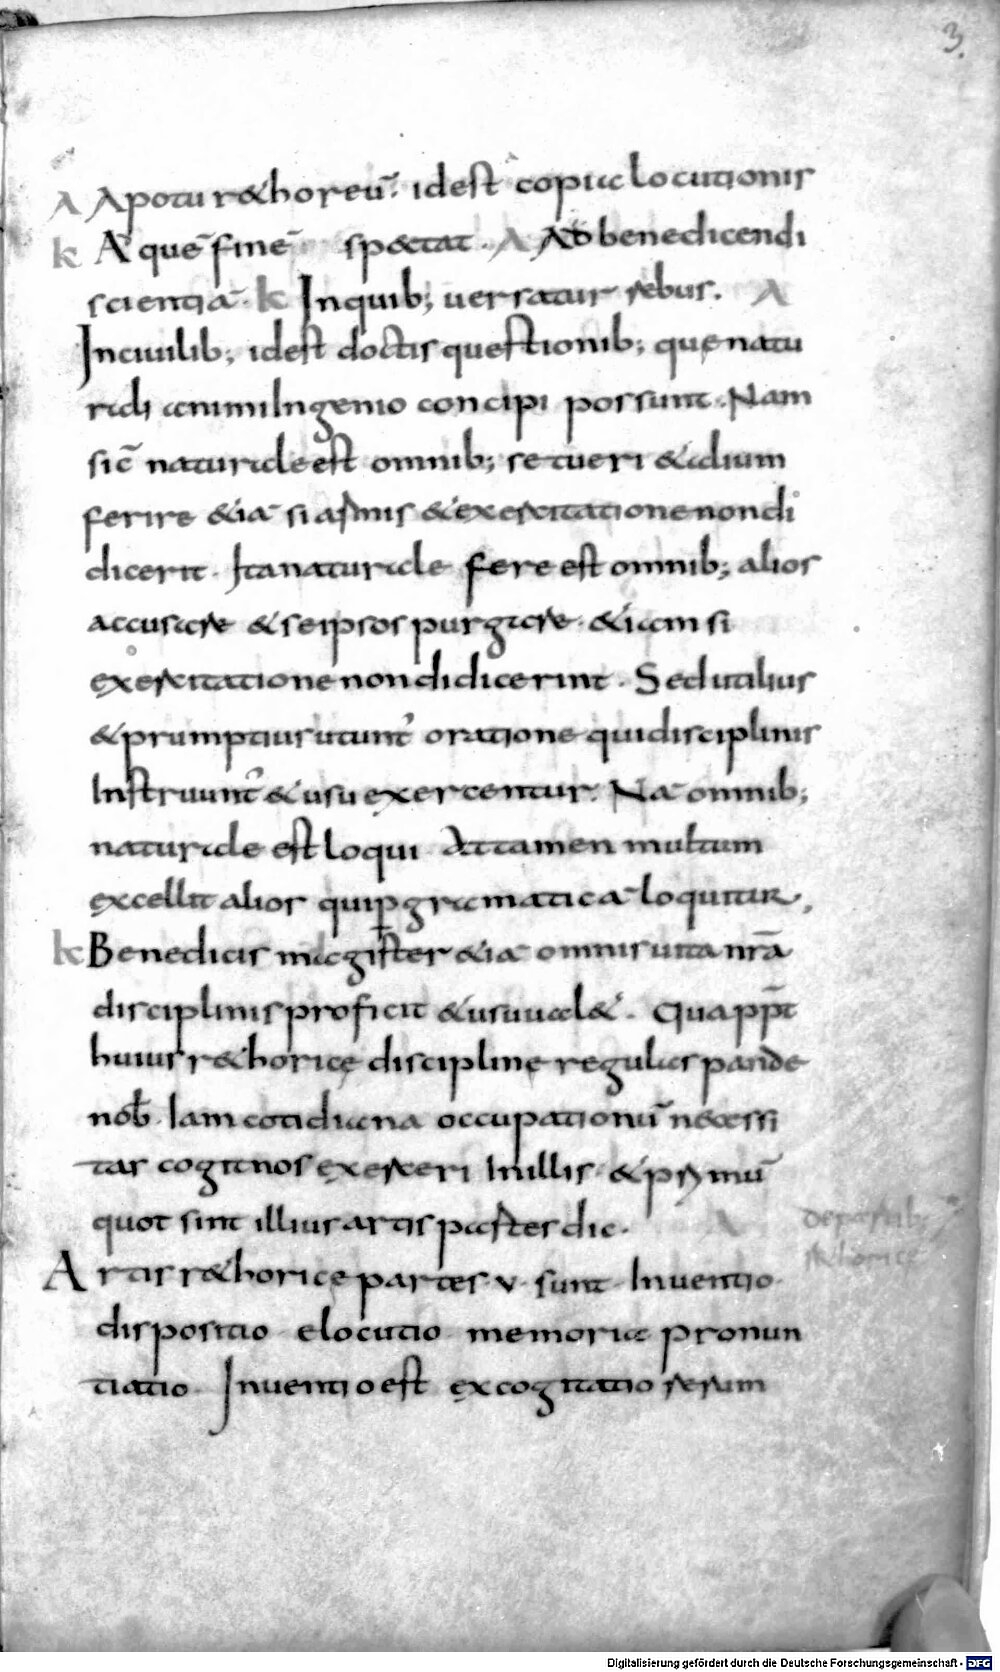 3.
A Apotu rethoreū. idest copia locutionis
k Ad quē finē spectat. A Ad benedicendi
scientiā. k Inquib; uersatur rebus. A
Inciuilib; idest doctis questionib; quę natu
rali animi Ingenio concipi possunt. Nam
sic̄ naturale est omnib; se tueri & alium
ferire &iā si armis & exercitatione non di
dicerit. Ita naturale fere est omnib; alios
accusare & se ipsos purgare. &iam si
exercitatione non didicerint. Sed utilius
& prumptius utunt᷑ oratione qui disciplinis
Instruunt᷑ & usu exercentur. Nā omnib;
naturale est loqui Attamen multum
excellit alios qui ꝑ gramaticā loquitur,
k Benedicis magister &iā omnis uita nr̄a
disciplinis proficit & usu ual&. Qua ppt̄
huius r&horice discipline regulas pande
nob̄. Iam cotidiana occupationū necessi
tas cogit nos exerceri In illis. & p rimū
quot sint illius artis partes dic. A
de partib;
r&horice
Artis r&horice partes v sunt. Inuentio
dispositio elocutio memoria pronun
tiatio. Inuentio est excogitatio rerum
Digitalisierung gefördert durch die Deutsche Forschungsgemeinschaft - DFG